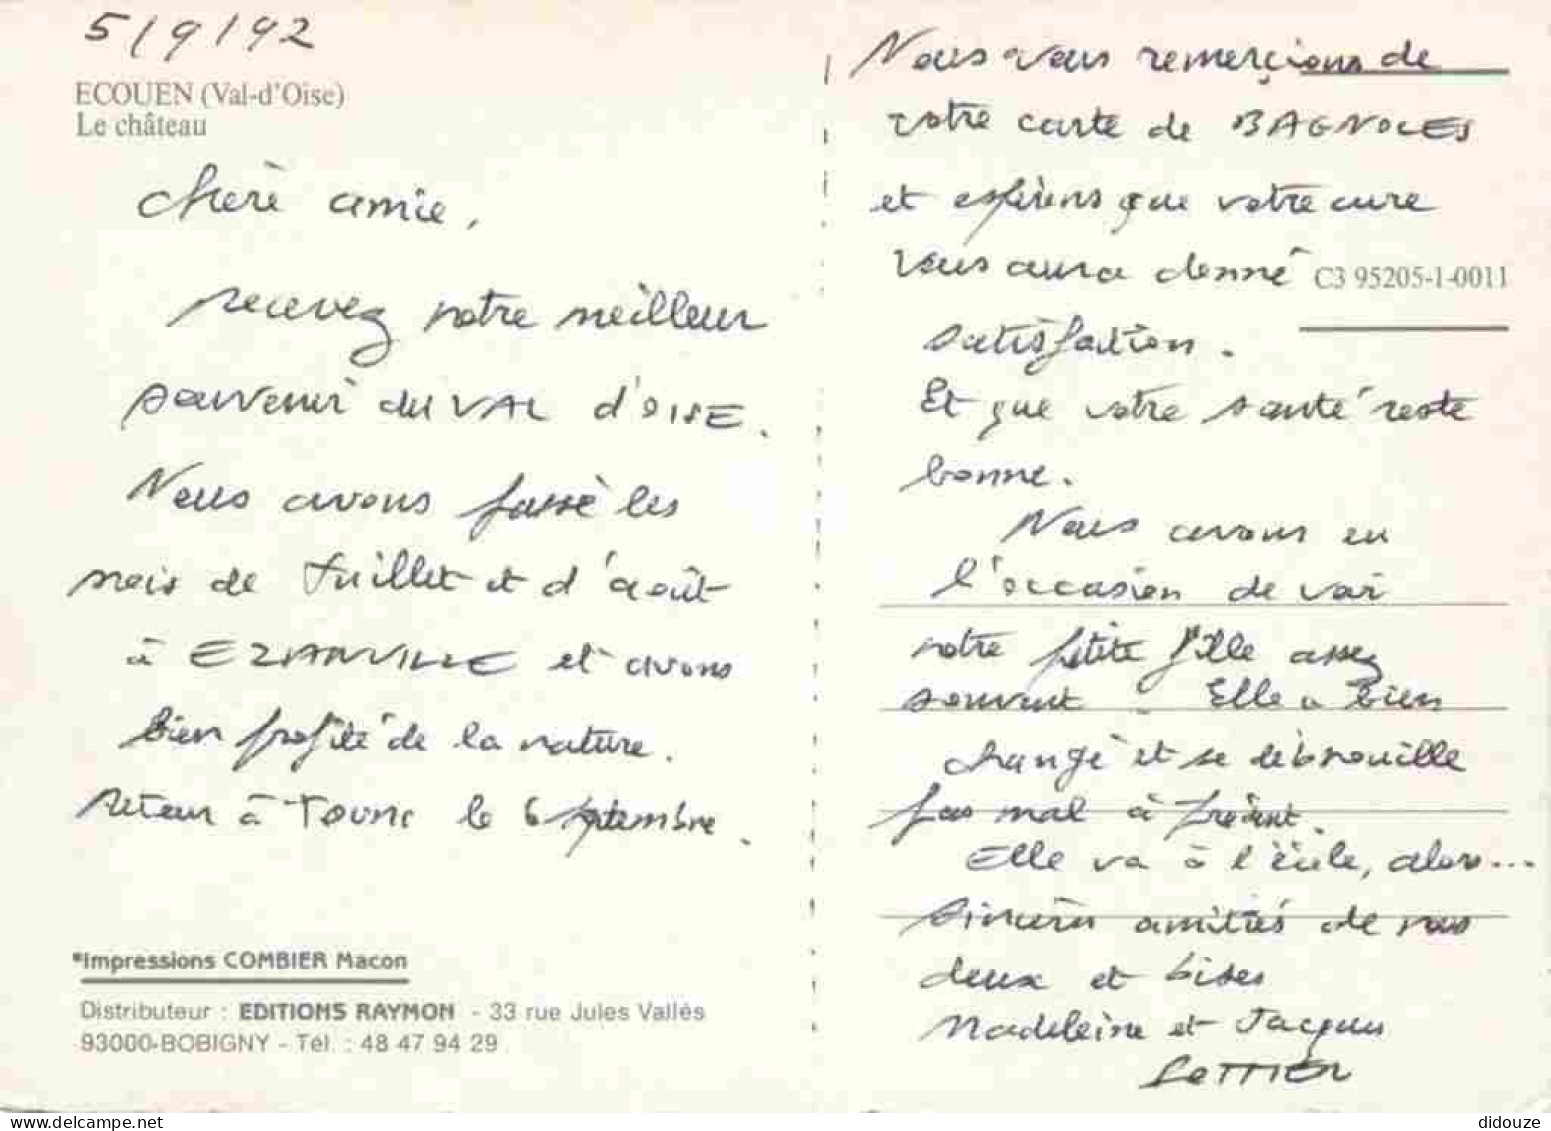 5/9/92
ECOUEN (Val-d'Oise)
Le château
chère amie,
recevez notre meilleur
souvenir du VAL d'OISE.
Nous avons passé les
mois de Juillet et d'août
à EZANVILLE et avons
bien profité de la nature.
retour à Tours le 6 septembre.
*Impressions COMBIER Macon
Distributeur : EDITIONS RAYMON - 33 rue Jules Vallès
93000-BOBIGNY - Tél. : 48 47 94 29
Nous vous remerçions de
votre carte de BAGNOLES
et espérons que votre cure
vous aura donné
C3 95205-1-0011
satisfaction.
Et que votre santé reste
bonne.
Nous avons eu
l'occasion de voir
notre petite fille assez
souvent. Elle a bien
changé et se débrouille
pas mal à présent.
Elle va à l'école, alors...
sincères amitiés de nous
deux et bises
Madeleine et Jacques
didouze